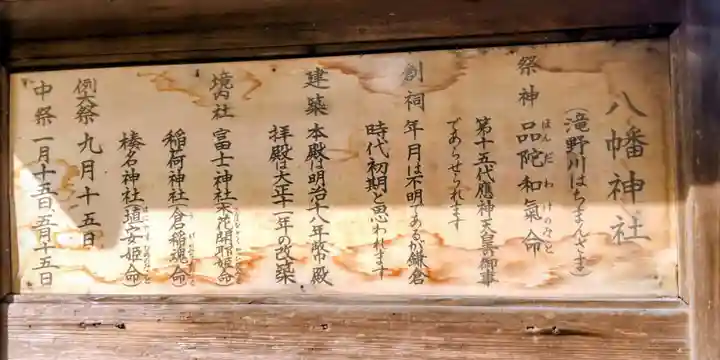 八幡神社
(滝野川はちまんさま)
祭神 品陀和氣命
ほんだわけのみこと
第十五代應神天皇の御事
であらせられます
創祠 年月は不明であるが鎌倉
時代初期と思われます
建築 本殿は明治十八年幣殿
拝殿は大正十一年の改築
境内社 富士神社(木花開耶姫命)
稲荷神社(倉稲魂命)
榛名神社(埴安姫命)
例大祭 九月十五日
中祭 一月十五日五月十五日